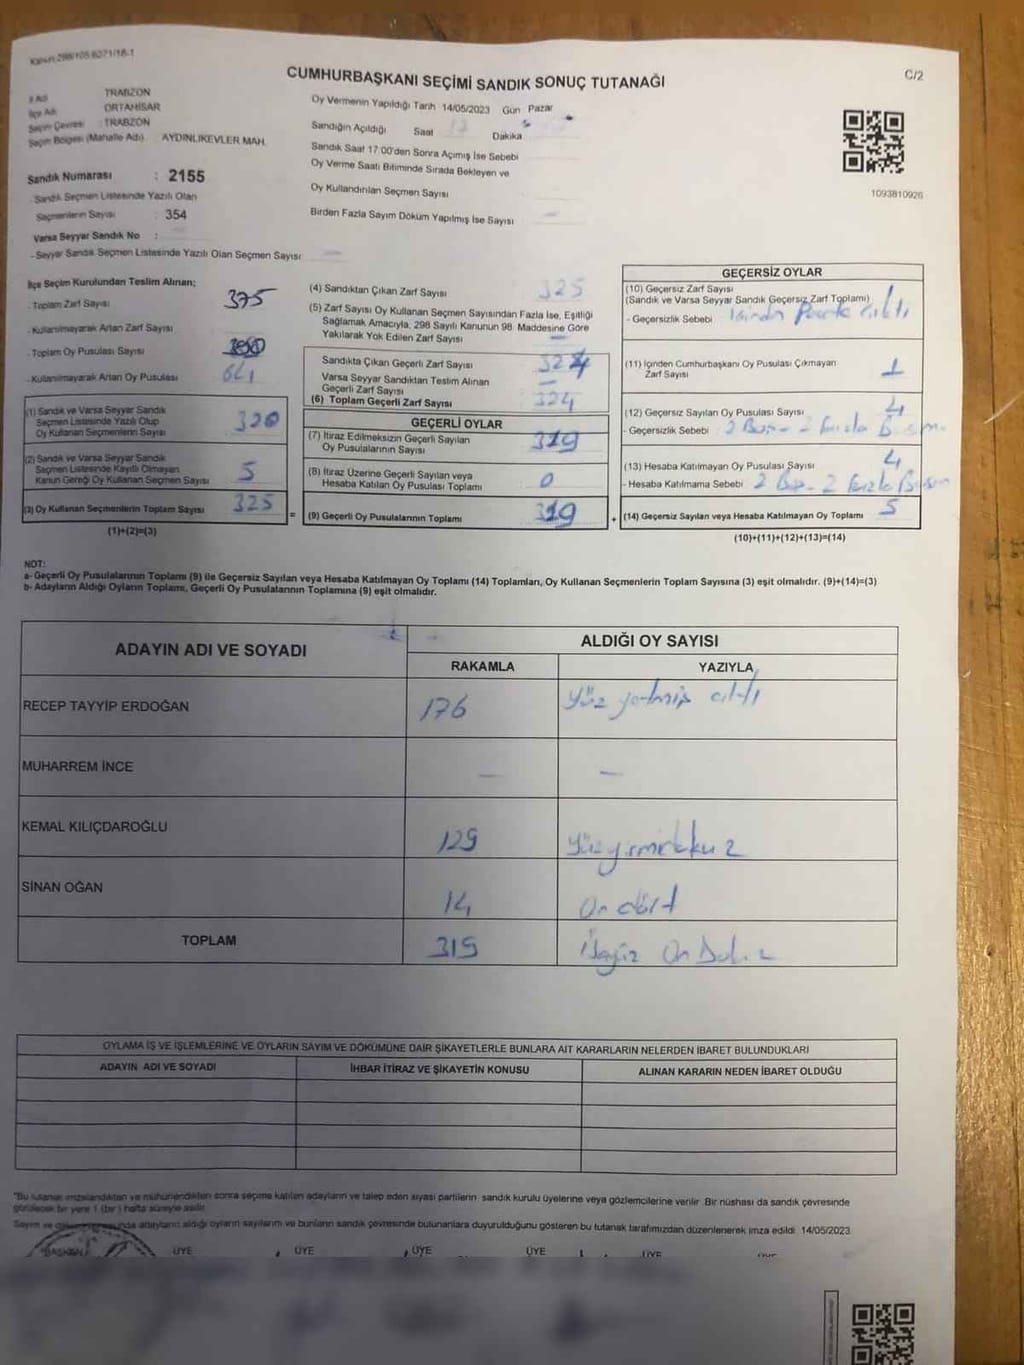 Kanun:298/105 6271/18-1
C/2
CUMHURBAŞKANI SEÇİMİ SANDIK SONUÇ TUTANAĞI
İl Adı TRABZON
İlçe Adı ORTAHİSAR
Seçim Çevresi : TRABZON
Seçim Bölgesi (Mahalle Adı) : AYDINLIKEVLER MAH.
Sandık Numarası : 2155
- Sandık Seçmen Listesinde Yazılı Olan
Seçmenlerin Sayısı : 354
Varsa Seyyar Sandık No :
- Seyyar Sandık Seçmen Listesinde Yazılı Olan Seçmen Sayısı
Oy Vermenin Yapıldığı Tarih 14/05/2023 Gün Pazar
Sandığın Açıldığı Saat 17 Dakika
Sandık Saat 17:00'den Sonra Açımış İse Sebebi
Oy Verme Saati Bitiminde Sırada Bekleyen ve
Oy Kullandırılan Seçmen Sayısı
Birden Fazla Sayım Döküm Yapılmış İse Sayısı
1093810926
İlçe Seçim Kurulundan Teslim Alınan;
- Toplam Zarf Sayısı 375
- Kullanılmayarak Artan Zarf Sayısı
- Toplam Oy Pusulası Sayısı
- Kullanılmayarak Artan Oy Pusulası
(1) Sandık ve Varsa Seyyar Sandık
Seçmen Listesinde Yazılı Olup
Oy Kullanan Seçmenlerin Sayısı 320
(2) Sandık ve Varsa Seyyar Sandık
Seçmen Listesinde Kayıtlı Olmayan
Kanun Gereği Oy Kullanan Seçmen Sayısı 5
(3) Oy Kullanan Seçmenlerin Toplam Sayısı 325 =
(1)+(2)=(3)
(4) Sandıktan Çıkan Zarf Sayısı 325
(5) Zarf Sayısı Oy Kullanan Seçmen Sayısından Fazla İse, Eşitliği
Sağlamak Amacıyla, 298 Sayılı Kanunun 98. Maddesine Göre
Yakılarak Yok Edilen Zarf Sayısı —
Sandıkta Çıkan Geçerli Zarf Sayısı 324
Varsa Seyyar Sandıktan Teslim Alınan
Geçerli Zarf Sayısı —
(6) Toplam Geçerli Zarf Sayısı 324
GEÇERLİ OYLAR
(7) İtiraz Edilmeksizin Geçerli Sayılan
Oy Pusulalarının Sayısı 319
(8) İtiraz Üzerine Geçerli Sayılan veya
Hesaba Katılan Oy Pusulası Toplamı 0
(9) Geçerli Oy Pusulalarının Toplamı 319 +
GEÇERSİZ OYLAR
(10) Geçersiz Zarf Sayısı
(Sandık ve Varsa Seyyar Sandık Geçersiz Zarf Toplamı) 1
- Geçersizlik Sebebi çıktı
(11) İçinden Cumhurbaşkanı Oy Pusulası Çıkmayan
Zarf Sayısı 1
(12) Geçersiz Sayılan Oy Pusulası Sayısı 4
- Geçersizlik Sebebi 2 Boş - 2 fazla
(13) Hesaba Katılmayan Oy Pusulası Sayısı 4
- Hesaba Katılmama Sebebi 2 Boş - 2 fazla
(14) Geçersiz Sayılan veya Hesaba Katılmayan Oy Toplamı 5
(10)+(11)+(12)+(13)=(14)
NOT:
a- Geçerli Oy Pusulalarının Toplamı (9) ile Geçersiz Sayılan veya Hesaba Katılmayan Oy Toplamı (14) Toplamları, Oy Kullanan Seçmenlerin Toplam Sayısına (3) eşit olmalıdır. (9)+(14)=(3)
b- Adayların Aldığı Oyların Toplamı, Geçerli Oy Pusulalarının Toplamına (9) eşit olmalıdır.
ADAYIN ADI VE SOYADI ALDIĞI OY SAYISI
RAKAMLA YAZIYLA
RECEP TAYYİP ERDOĞAN 176 yüz yetmiş altı
MUHARREM İNCE — —
KEMAL KILIÇDAROĞLU 129 yüz yirmidokuz
SİNAN OĞAN 14 On dört
TOPLAM 319 Üçyüz On Dokuz
OYLAMA İŞ VE İŞLEMLERİNE VE OYLARIN SAYIM VE DÖKÜMÜNE DAİR ŞİKAYETLERLE BUNLARA AİT KARARLARIN NELERDEN İBARET BULUNDUKLARI
ADAYIN ADI VE SOYADI İHBAR İTİRAZ VE ŞİKAYETİN KONUSU ALINAN KARARIN NEDEN İBARET OLDUĞU
"Bu tutanak imzalandıktan ve mühürlendikten sonra seçime katılan adayların ve talep eden siyasi partilerin, sandık kurulu üyelerine veya gözlemcilerine verilir. Bir nüshası da sandık çevresinde
görülecek bir yere 1 (bir) hafta süreyle asılır.
Sayım ve dökümü sonunda adayların aldığı oyların sayılarını ve bunların sandık çevresinde bulunanlara duyurulduğunu gösteren bu tutanak tarafımızdan düzenlenerek imza edildi. 14/05/2023
BAŞKAN ÜYE ÜYE ÜYE ÜYE ÜYE